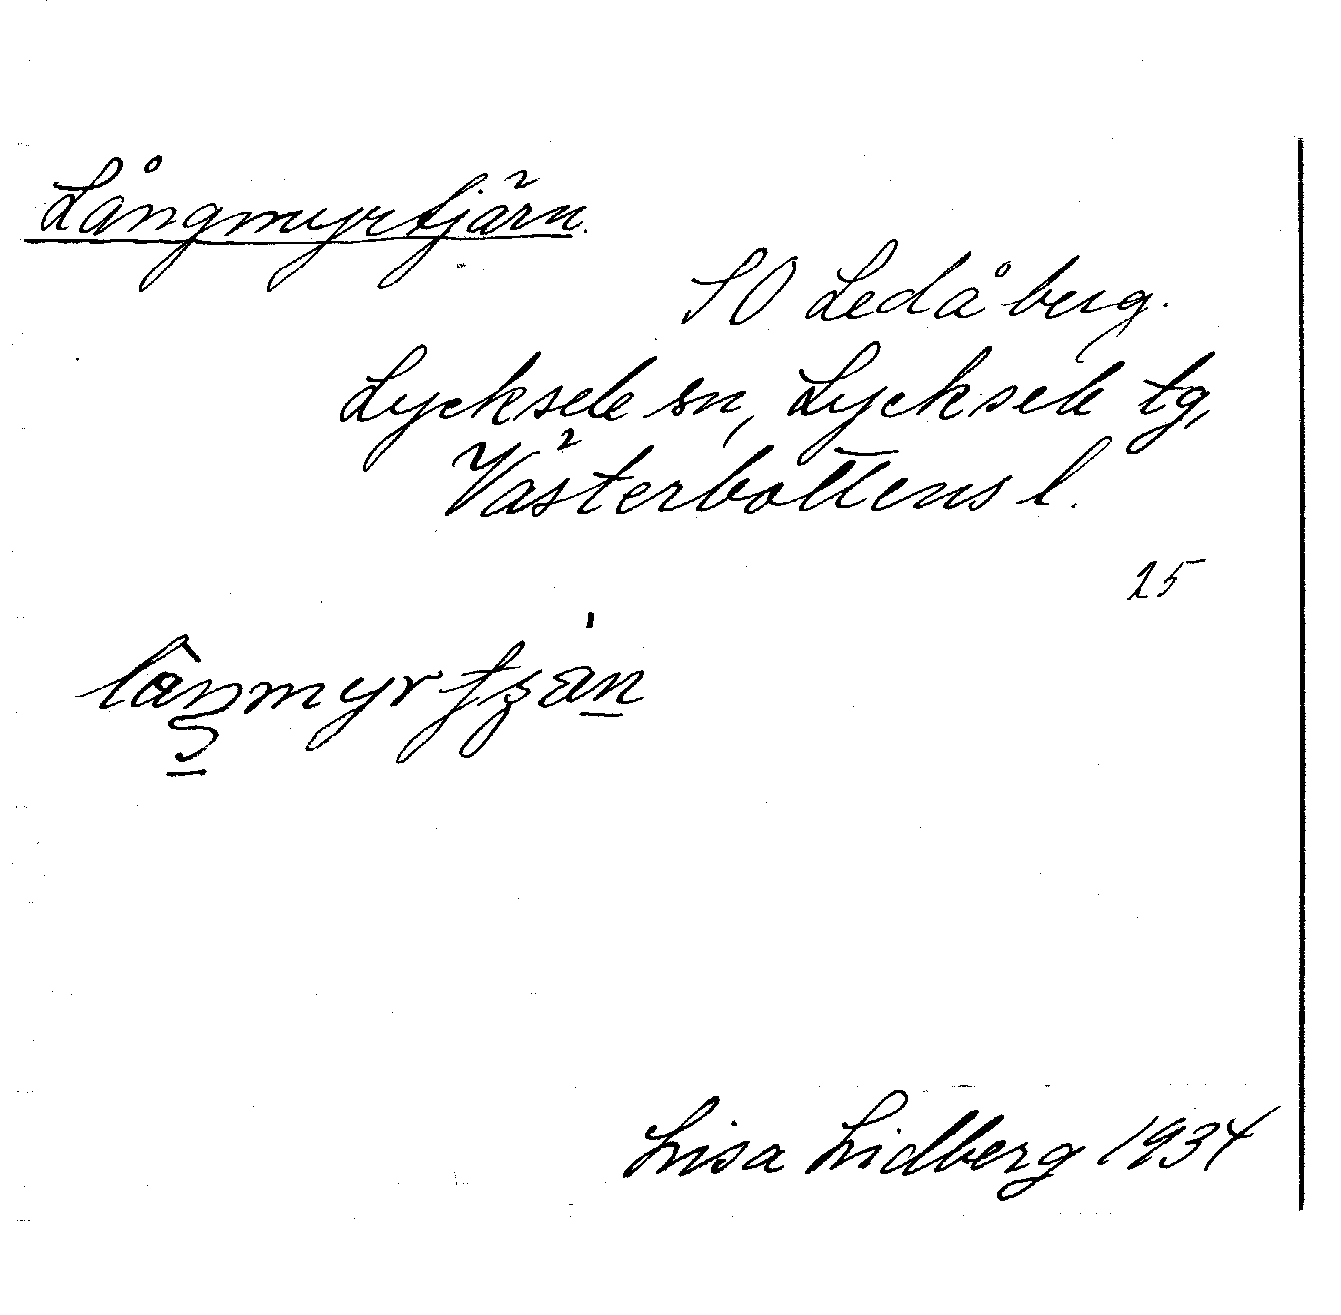 Långmyrtjärn.
SO Ledåberg.
Lycksele sn, Lycksele tg,
Västerbottens l.
25
Lisa Lidberg 1934